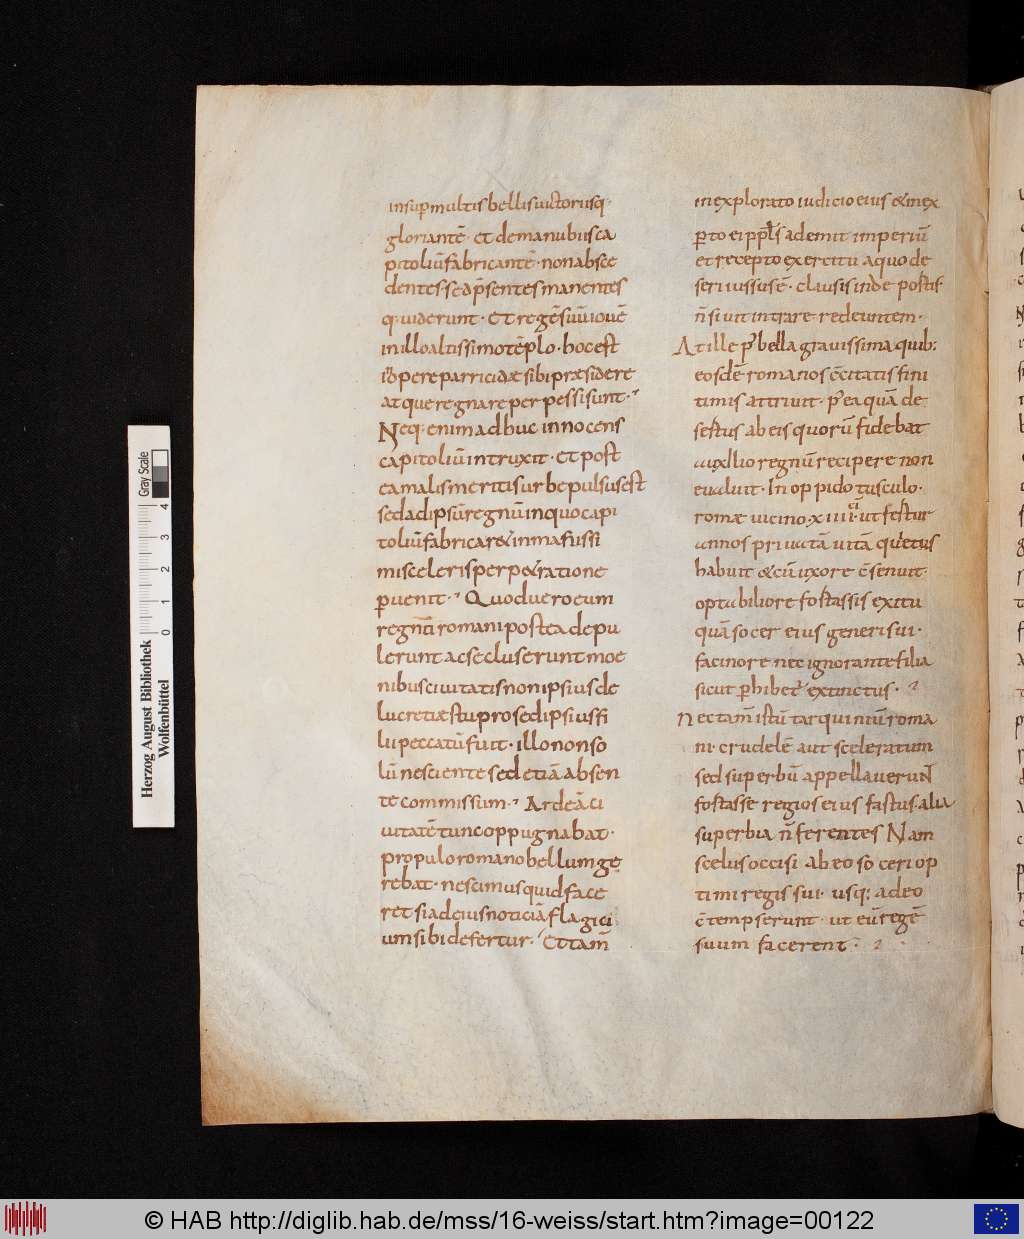 insup multis bellis uictoriisq·
gloriantē· et de manubiis ca
pitoliū fabricantē· non absce
dentes· sed p̄sentes manentes
q· uiderunt· et regē suū iouē
in illo altissimo tēplo· hoc est
in opere parricidæ sibi præsidere
atque regnare perpessi sunt·
Neq· enim adhuc innocens
capitoliū intruxit· et post
ea malis meritis urbe pulsus est
sed ad ipsū regnū in quo capi
toliū fabricar& inmafussi
mi sceleris perp&ratione
puenit· Quod uero eum
regn̄ romani postea depu
lerunt ac secluserunt moe
nibus ciuitatis non ipsius de
lucretiæ stupro sed ipsius fi
lii peccatū fuit· illo non so
lū nesciente sed etiā absen
te commissum· Ardeā ci
uitatē tunc oppugnabat·
pro pulo romano bellum ge
rebat· nescimus quid face
ret si ad eius noticiā flagici
um sibi defertur· Et tam̄
inexplorato iudicio eius & inex
pto ei ppl̄s ademit imperiū
et recepto exercitu a quo de
seri iussus ē· clausis inde postis
n̄ siuit intrare redeuntem·
At ille p' bella grauissima quib:
eosdē romanos c̄citatis fini
timis attriuit· p' ea quā de
sertus ab eis quorū fidebat
auxllio regnū recipere non
eualuit· In̄ oppido tusculo·
romæ uicino· xiiii· ut fertur
annos priuatā uitā quietus
habuit & cū uxore c̄senuit·
optabiliore fostassis exitu
quā socer eius generi sui·
facinore nec ignorante filia
sicut phibet' extinctus·
Nec tam̄ istū tarquiniū roma
ni· crudelē aut sceleratum
sed superbū appellauerunt
fostasse regios eius fastus· alia
superbia n̄ ferentes Nam
scelus occisi ab eo soceri op
timi regis sui· usq: adeo
c̄tempserunt· ut eū regē
suum facerent·
Gray Scale
0 1 2 3 4
Herzog August Bibliothek
Wolfenbüttel
© HAB http://diglib.hab.de/mss/16-weiss/start.htm?image=00122